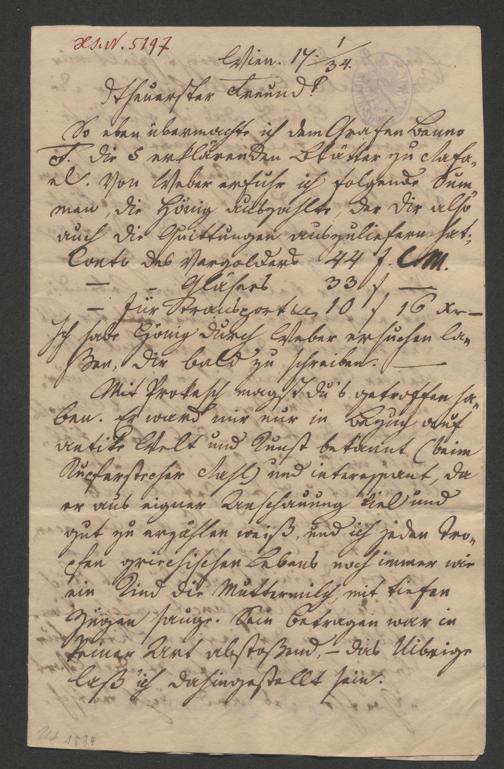 Hs. N. 5197
Wien. 17 1/34.
Theuerster Freund!
So eben übermachte ich dem Grafen Benno
F. die 5 erklärenden Blätter zu Rafa-
el. Von Weber erfuhr ich folgende Sum-
men, die Hönig auszahlte, der Dir also
auch die Quittungen auszuliefern hat.
Conto des Vergolders 44 f. C.M.
— — Glasers 33 f —
— für Transport 10 f 16 Xr —
Ich habe Hönig durch Weber ersuchen la-
ßen, Dir bald zu schreiben. —
Mit Prokesch magst Du's getroffen ha-
ben. Er ward mir nur in Bezug auf
antike Welt und Kunst bekannt (beim
Kupferstecher Rahl) und interessant, da
er aus eigner Anschauung viel und
gut zu erzählen weiß, und ich jeden Tro-
pfen griechischen Lebens noch immer wie
ein Kind die Muttermilch mit tiefen
Zügen sauge. Sein Betragen war in
keiner Art abstoßend. — Das Uibrige
laß ich dahingestellt sein.